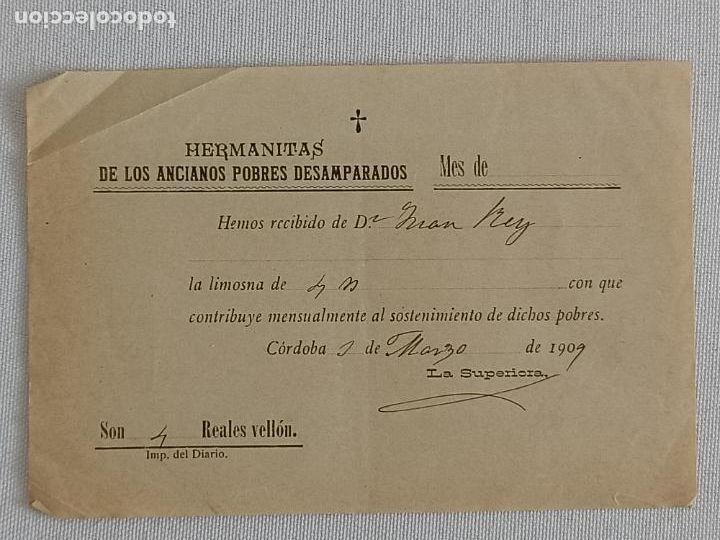 todocoleccion
✝
HERMANITAS
DE LOS ANCIANOS POBRES DESAMPARADOS
Mes de
Hemos recibido de D.ⁿ Juan Rey
la limosna de 4 con que
contribuye mensualmente al sostenimiento de dichos pobres.
Córdoba 1 de Marzo de 1909
La Superiora,
Son 4 Reales vellón.
Imp. del Diario.